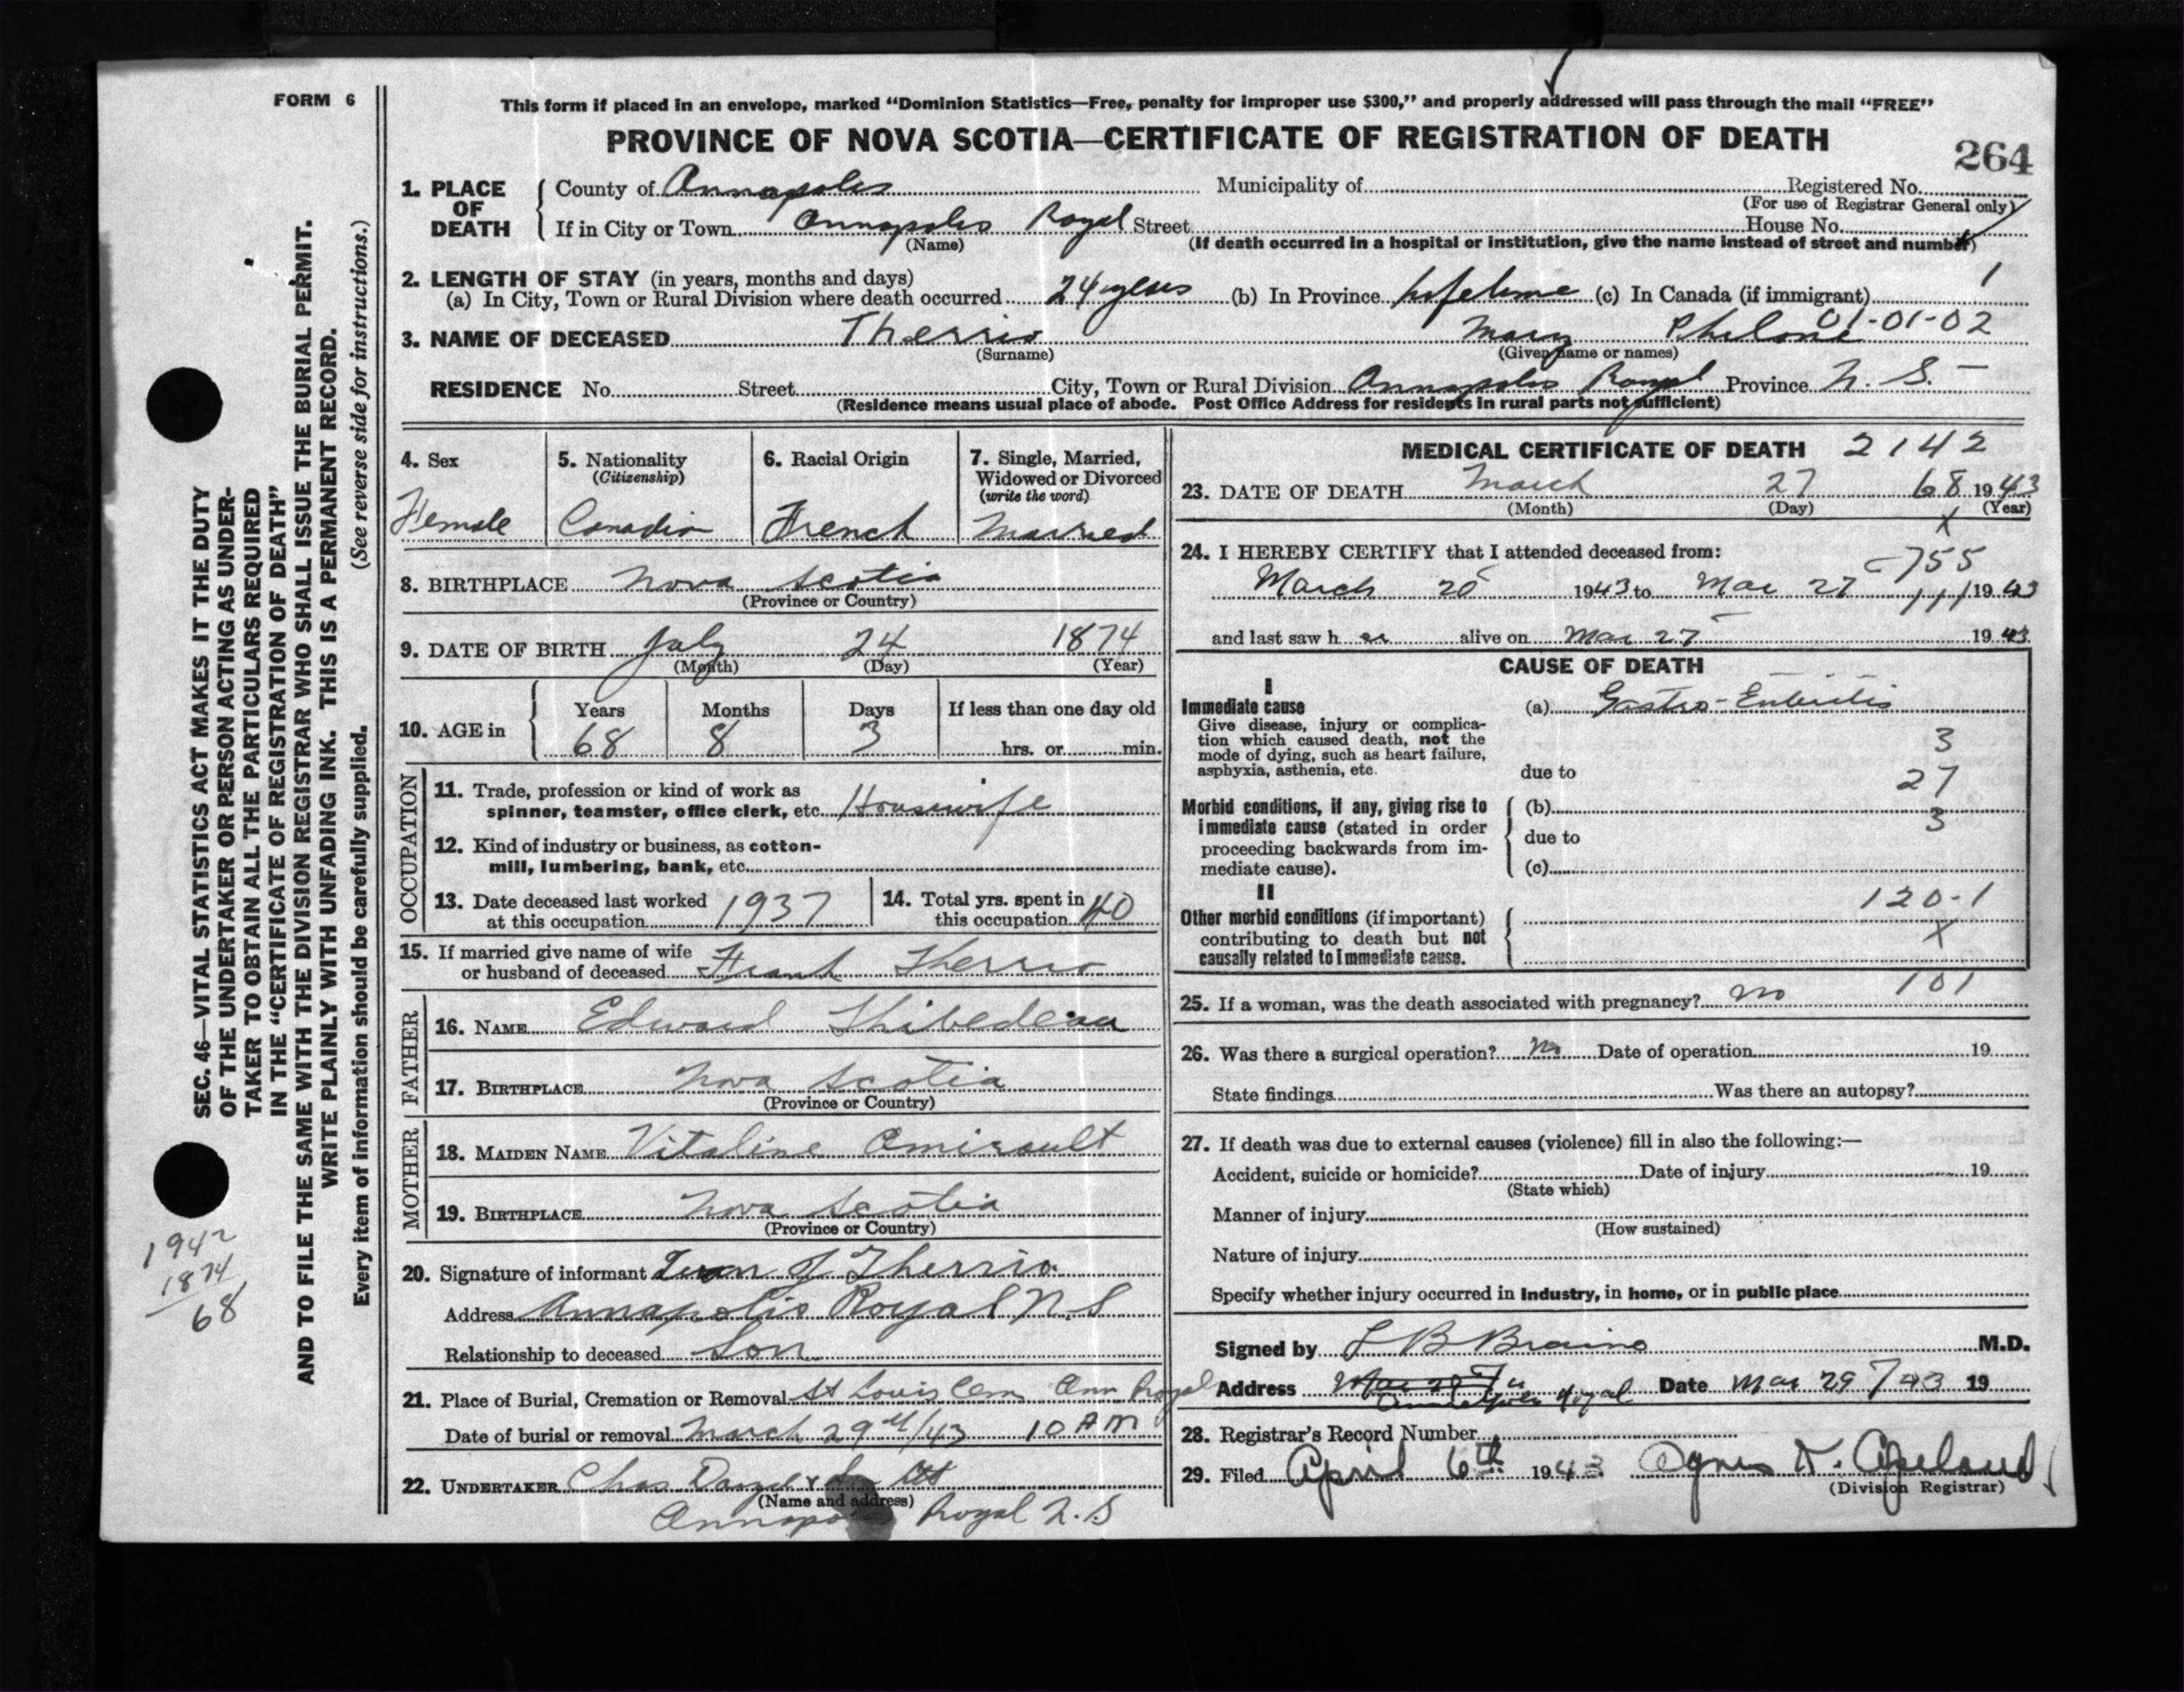 FORM 6
This form if placed in an envelope, marked “Dominion Statistics—Free, penalty for improper use $300,” and properly addressed will pass through the mail “FREE”
PROVINCE OF NOVA SCOTIA—CERTIFICATE OF REGISTRATION OF DEATH
264
1. PLACE OF DEATH
County of Annapolis Municipality of Registered No.
(For use of Registrar General only)
If in City or Town Annapolis Royal Street House No.
(Name) (If death occurred in a hospital or institution, give the name instead of street and number)
2. LENGTH OF STAY (in years, months and days)
(a) In City, Town or Rural Division where death occurred 24 years (b) In Province Lifetime (c) In Canada (if immigrant) 1
01-01-02
3. NAME OF DECEASED Therrio Mary
(Surname) (Given name or names)
RESIDENCE No. Street City, Town or Rural Division Annapolis Royal Province N. S.
(Residence means usual place of abode. Post Office Address for residents in rural parts not sufficient)
4. Sex
Female
5. Nationality
(Citizenship)
Canadia
6. Racial Origin
French
7. Single, Married,
Widowed or Divorced
(write the word)
Married
8. BIRTHPLACE Nova Scotia
(Province or Country)
9. DATE OF BIRTH July 24 1874
(Month) (Day) (Year)
10. AGE in
Years Months Days If less than one day old
68 8 3 hrs. or min.
OCCUPATION
11. Trade, profession or kind of work as
spinner, teamster, office clerk, etc. Housewife
12. Kind of industry or business, as cotton-
mill, lumbering, bank, etc.
13. Date deceased last worked
at this occupation 1937
14. Total yrs. spent in
this occupation 40
15. If married give name of wife
or husband of deceased Frank Therrio
FATHER
16. NAME Edward Thibedeau
17. BIRTHPLACE Nova Scotia
(Province or Country)
MOTHER
18. MAIDEN NAME Vitaline Amirault
19. BIRTHPLACE Nova Scotia
(Province or Country)
20. Signature of informant J Therrio
Address Annapolis Royal N.S
Relationship to deceased Son
21. Place of Burial, Cremation or Removal St Louis Cem Ann Royal
Date of burial or removal March 29th/43 10 AM
22. UNDERTAKER Chas
(Name and address)
Annapolis Royal N.S
MEDICAL CERTIFICATE OF DEATH 2142
23. DATE OF DEATH March 27 68 1943
(Month) (Day) (Year)
X
24. I HEREBY CERTIFY that I attended deceased from:
-755
March 25 1943 to Mar 27 111 1943
and last saw her alive on Mar 27 1943
CAUSE OF DEATH
I
Immediate cause
Give disease, injury or complica-
tion which caused death, not the
mode of dying, such as heart failure,
asphyxia, asthenia, etc.
(a) Gastro-Enteritis
3
due to
27
Morbid conditions, if any, giving rise to
immediate cause (stated in order
proceeding backwards from im-
mediate cause).
(b)
3
due to
(c)
II
120-1
Other morbid conditions (if important)
contributing to death but not
causally related to immediate cause.
X
101
25. If a woman, was the death associated with pregnancy? no
26. Was there a surgical operation? No Date of operation 19
State findings Was there an autopsy?
27. If death was due to external causes (violence) fill in also the following:—
Accident, suicide or homicide? Date of injury 19
(State which)
Manner of injury
(How sustained)
Nature of injury
Specify whether injury occurred in Industry, in home, or in public place
Signed by L B Braine M.D.
Address Annapolis Royal Date Mar 29 /43 19
28. Registrar's Record Number
29. Filed April 6th 1943 Agnes Copeland
(Division Registrar)
SEC. 46—VITAL STATISTICS ACT MAKES IT THE DUTY
OF THE UNDERTAKER OR PERSON ACTING AS UNDER-
TAKER TO OBTAIN ALL THE PARTICULARS REQUIRED
IN THE “CERTIFICATE OF REGISTRATION OF DEATH”
AND TO FILE THE SAME WITH THE DIVISION REGISTRAR WHO SHALL ISSUE THE BURIAL PERMIT.
WRITE PLAINLY WITH UNFADING INK. THIS IS A PERMANENT RECORD.
Every item of information should be carefully supplied. (See reverse side for instructions.)
1942
1874
68